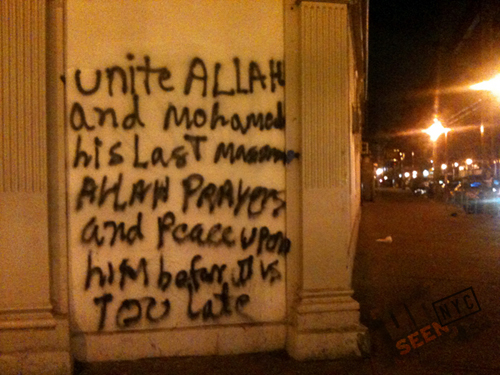 unite ALLAH
and Mohamed
his Last
ALLAH PRAyers
and Peace upon
him before It is
Too Late
NYC
SEEN